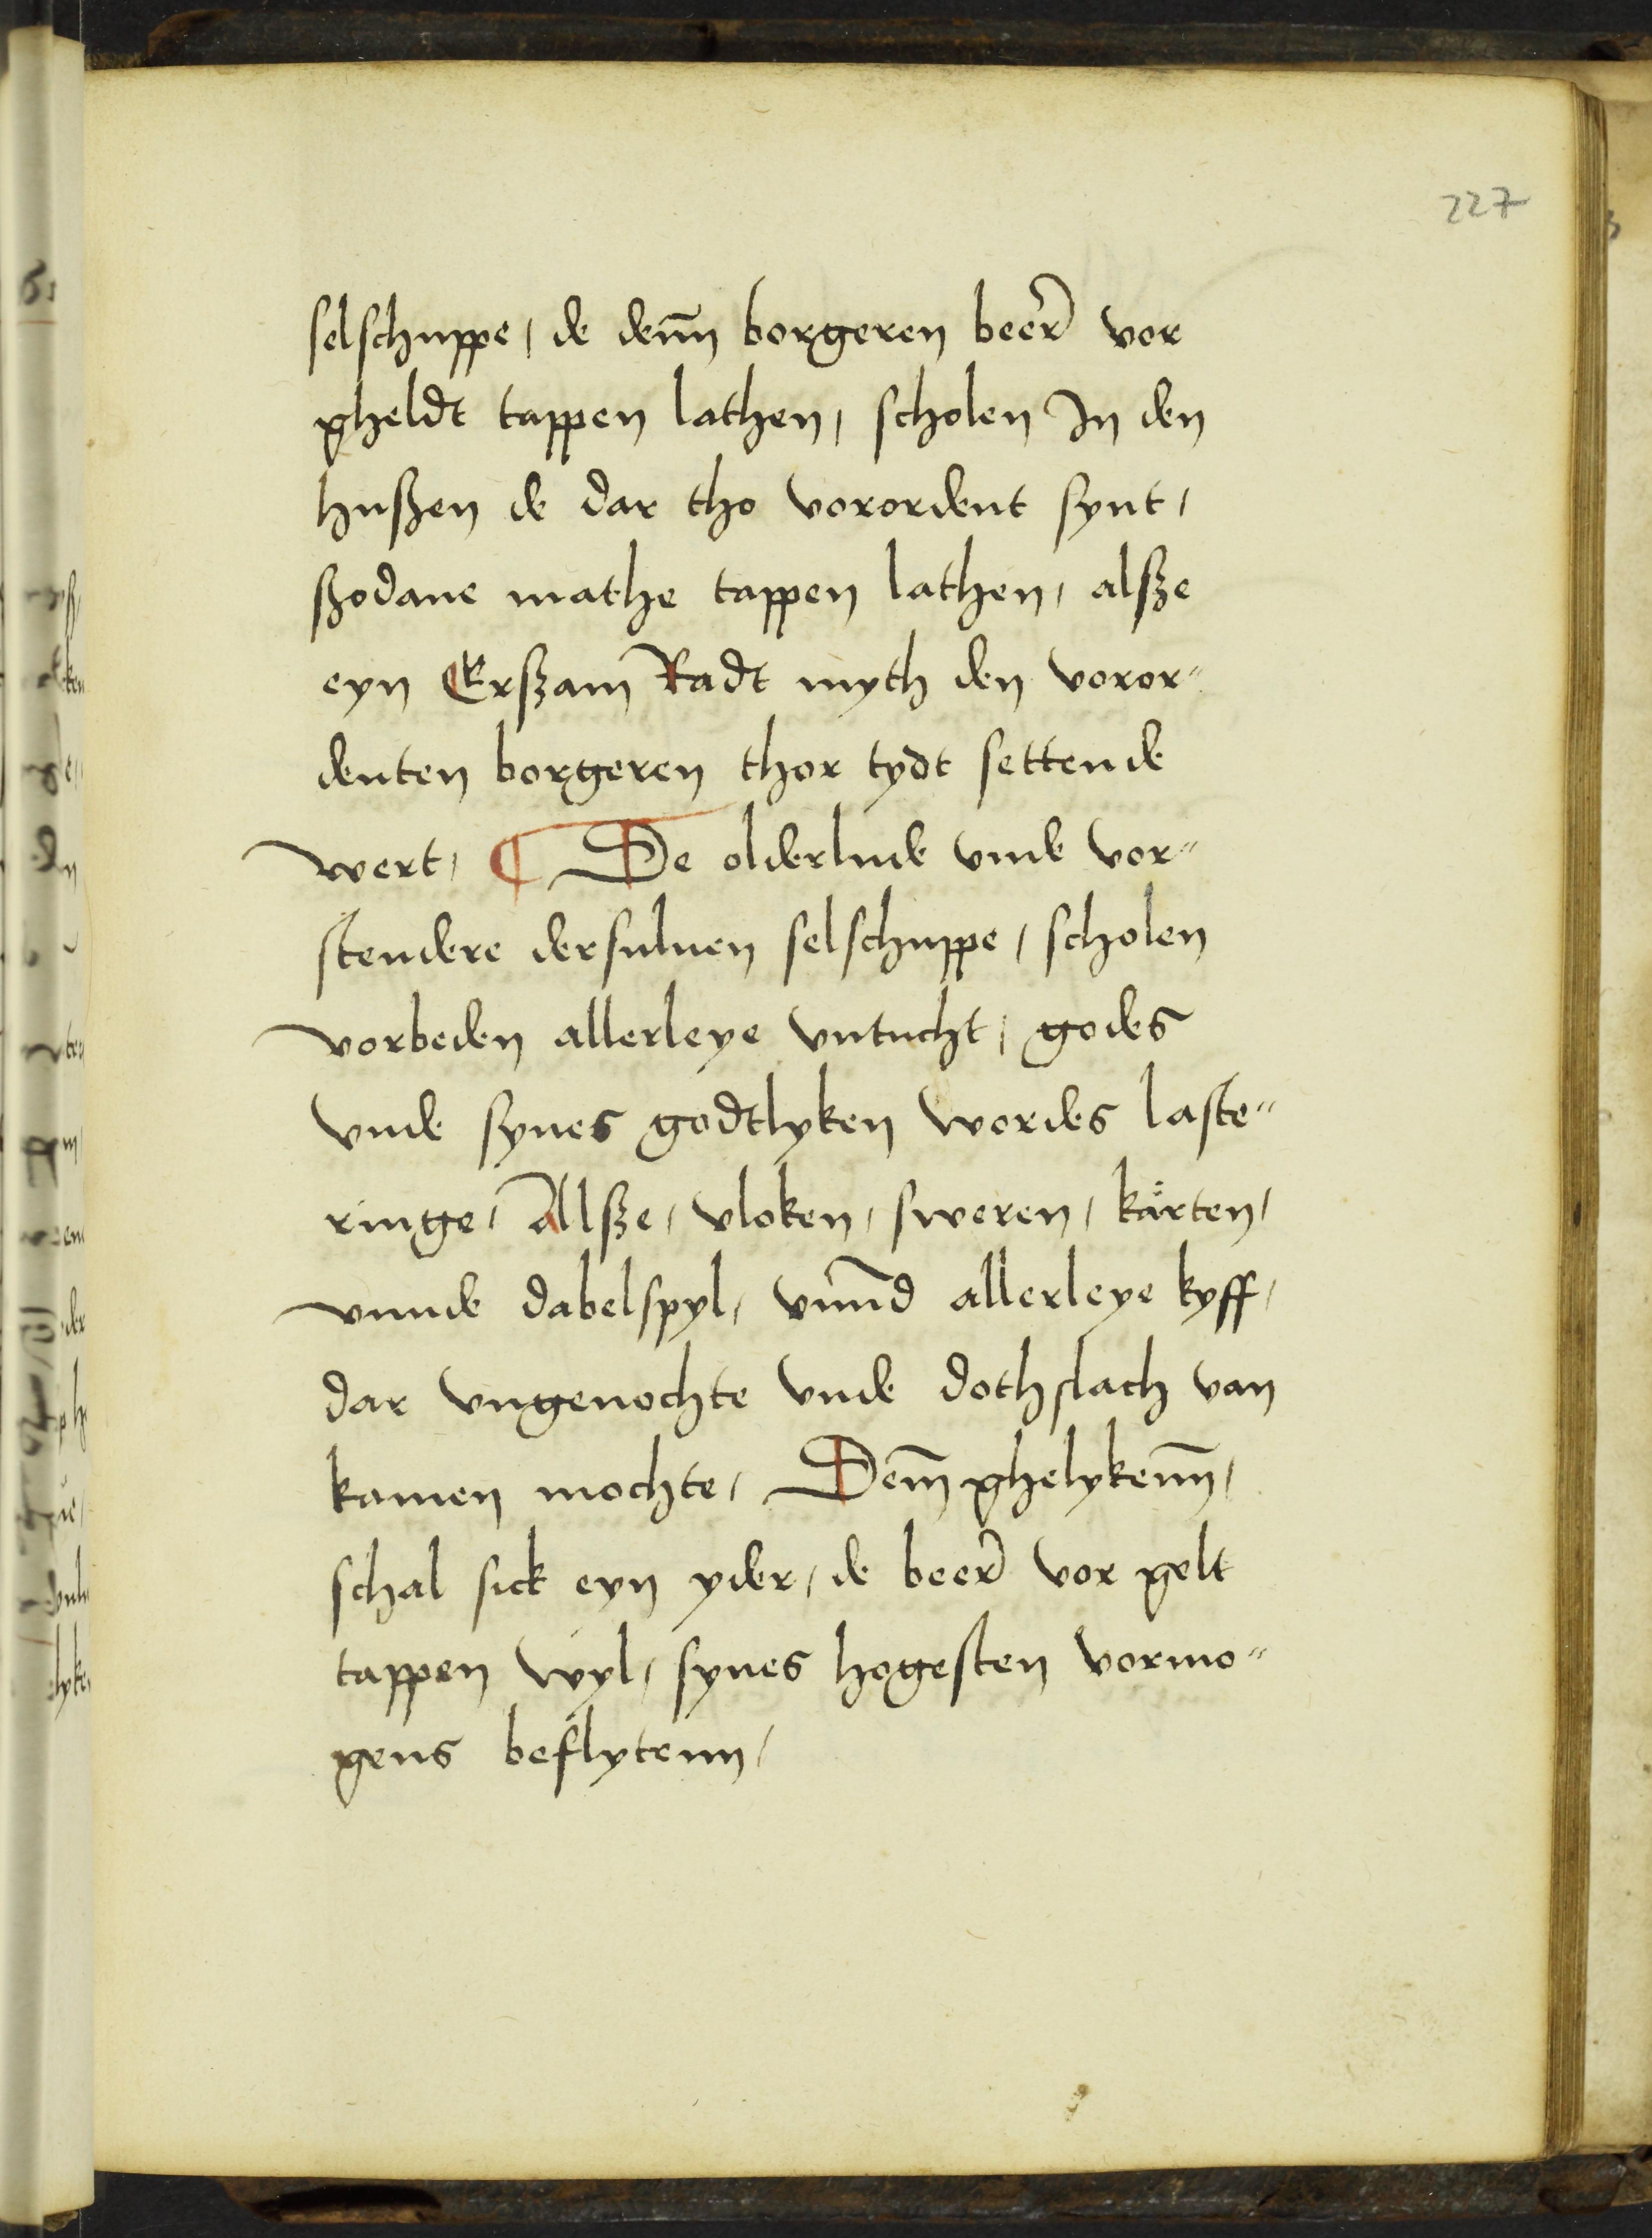 227
selschuppe / de denn̄ borgeren beer̄ vor
gheldt tappen lathen / scholen In den
hußen de dar tho vorordent synt /
ßodane mathe tappen lathen / alsze
eyn Erßam Radt myth den voror"
denten borgeren thor tydt settende
wert / ¶ De olderlude vnde vor"
stendere dersuluen selschuppe / scholen
vorbeden allerleye vntucht / godes
vnde synes godtlyken wordes laste"
ringe / Allsze / vloken / sweren / kårten /
vnnde dabelspyl / vnn̄d allerleye kyff /
dar vngenochte vnde dothslach van
kamen mochte / Dem̄ ghelykenn̄ /
schal sick eyn yder / de beer̄ vor gelt
tappen wyl / synes hogesten vormo"
gens beflytenn /